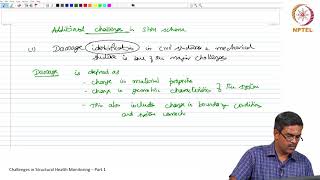 NPTEL
Additional challenges in SHM scheme
(1) Damage identification in civil structures & mechanical
structure is one of the major challenges
Damage is defined as
- change in material properties
- change in geometric characteristics } of the system
- This also include change in boundary condition
and system
Challenges in Structural Health Monitoring – Part 1